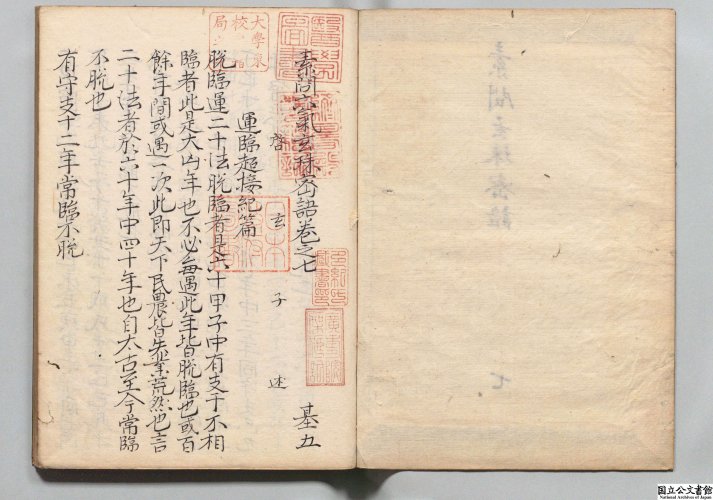 素問玄珠密語
七
素問六氣玄珠密語卷之七 基五
啓玄子述
運臨超接紀篇
脫臨運二十法脫臨者是六十甲子中有支干不相
臨者此是大凶年也不必每遇此年皆脫臨也或百
餘年間或遇一次此即天下民農皆失業荒然也言
二十法者於六十年中四十年也自太古至今常臨
不脫也
有守支十二年常臨不脫
大學東
校
局之
国立公文書館
National Archives of Japan